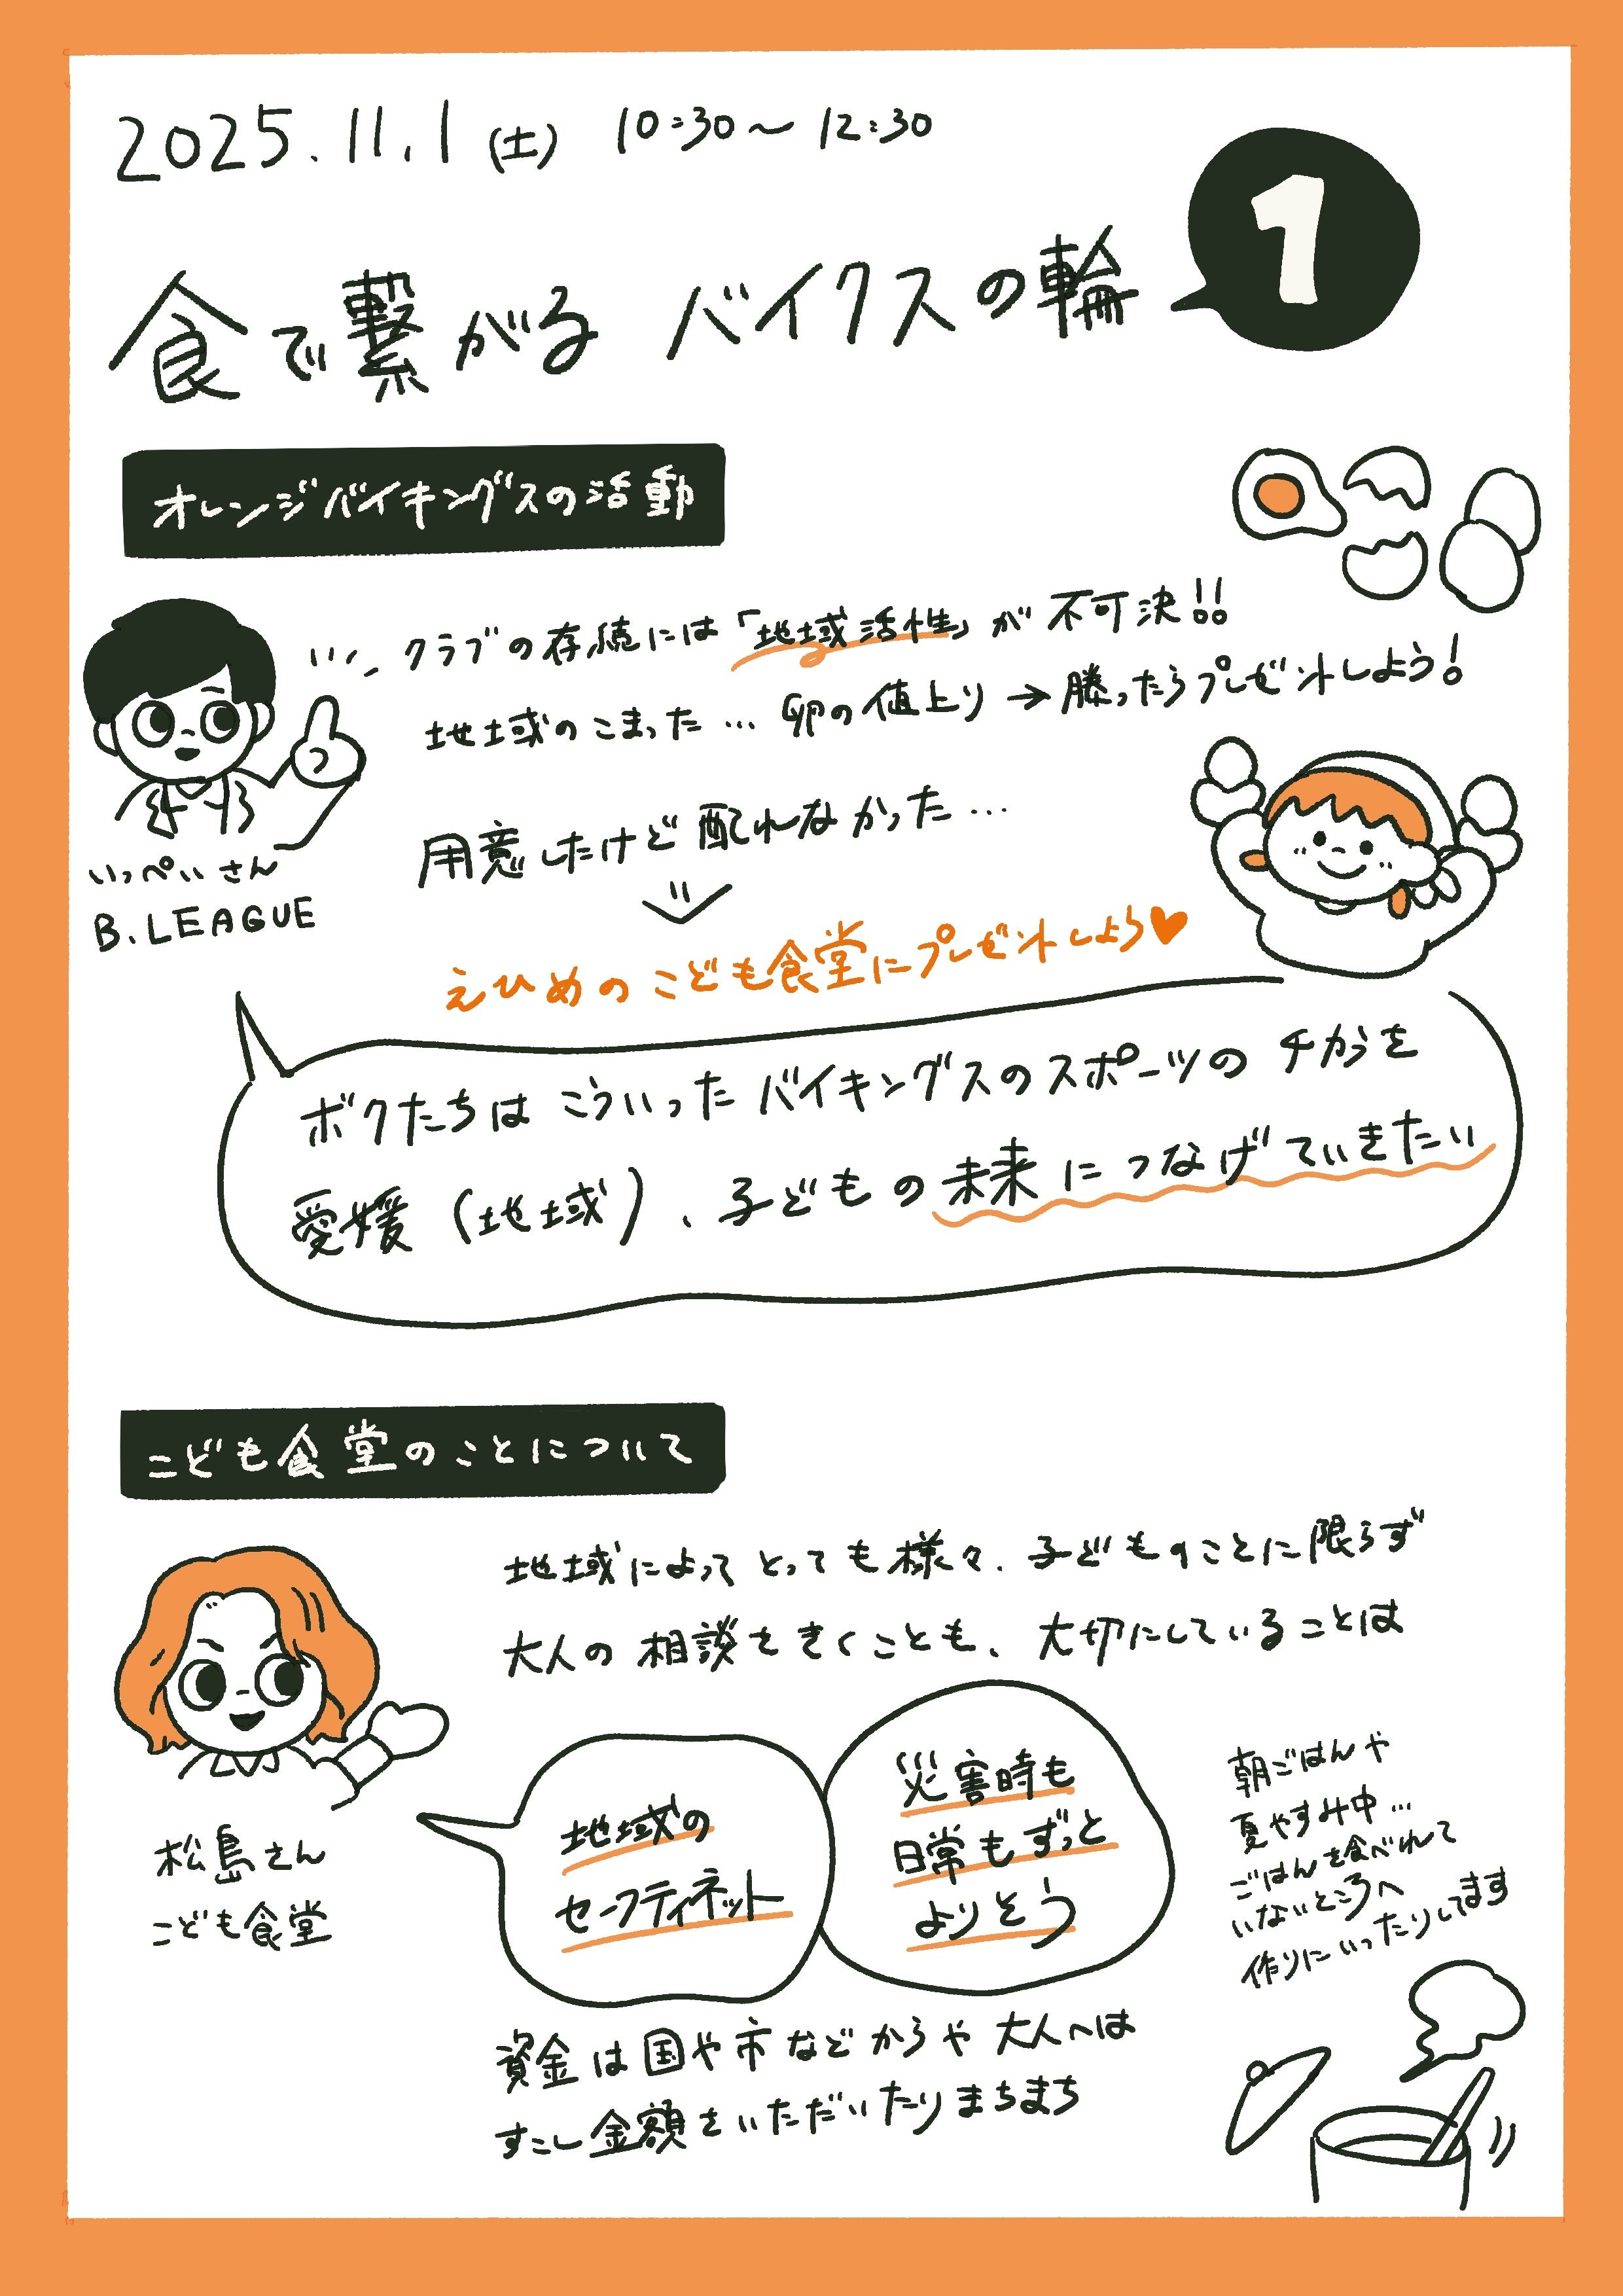 2025.11.1(土) 10:30〜12:30
食で繋がる バイクスの輪
1
オレンジバイキングスの活動
クラブの存続には「地域活性」が不可決!!
地域のこまった… 卵の値上り→勝ったらプレゼントしよう!
用意したけど配れなかった…
えひめのこども食堂にプレゼントしよう♥
いっぺいさん
B.LEAGUE
ボクたちはこういったバイキングスのスポーツのチカラを
愛媛(地域)、子どもの未来につなげていきたい
こども食堂のことについて
地域によってとっても様々、子どものことに限らず
大人の相談をきくことも、大切にしていることは
松島さん
こども食堂
地域の
セーフティネット
災害時も
日常もずっと
よりそう
朝ごはんや
夏やすみ中…
ごはんを食べれて
いないところへ
作りにいったりしてます
資金は国や市などからや大人へは
すこし金額をいただいたりまちまち